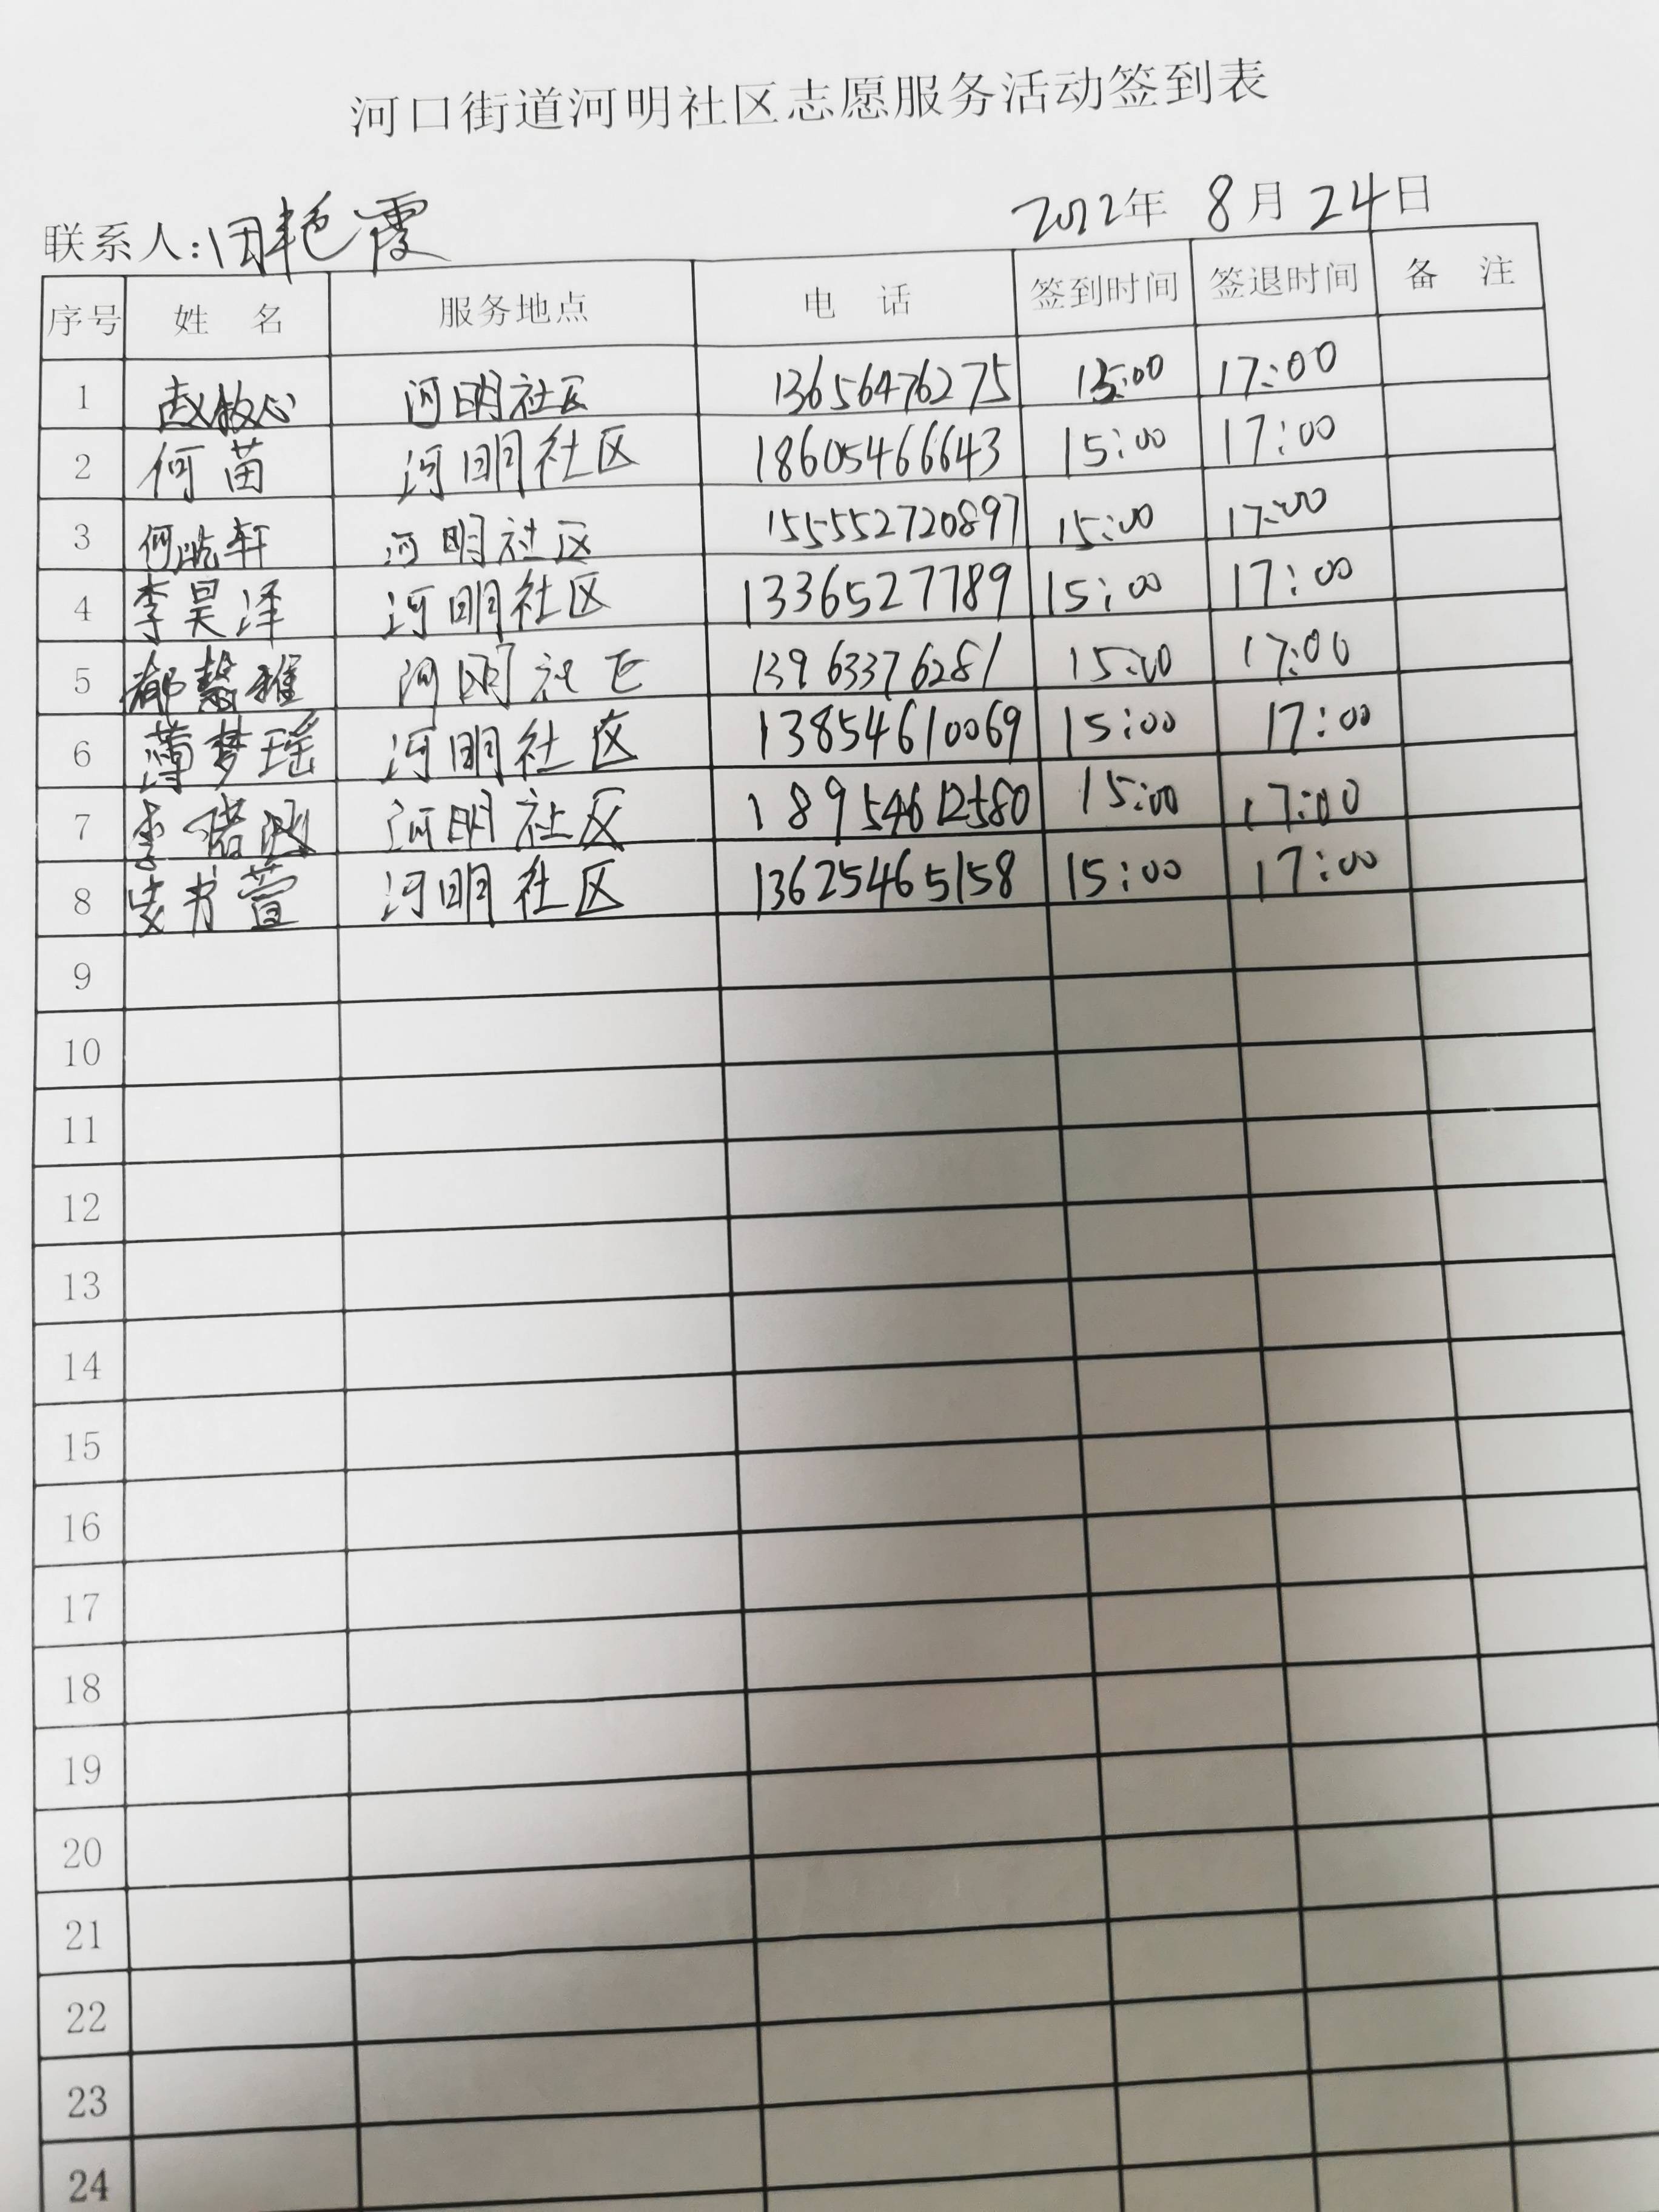 河口街道河明社区志愿服务活动签到表
联系人:田艳霞 2022年 8月24日
序号 姓 名 服务地点 电 话 签到时间 签退时间 备 注
1 赵牧心 河明社区 13656476275 15:00 17:00
2 何苗 河明社区 18605466643 15:00 17:00
3 何 轩 河明社区 155552720897 15:00 17:00
4 李昊泽 河明社区 1336527789 15:00 17:00
5 都慧雅 河明社区 13963376281 15:00 17:00
6 薄梦瑶 河明社区 13854610069 15:00 17:00
7 李 河明社区 15:00 17:00
8 书萱 河明社区 13625465158 15:00 17:00
9
10
11
12
13
14
15
16
17
18
19
20
21
22
23
24